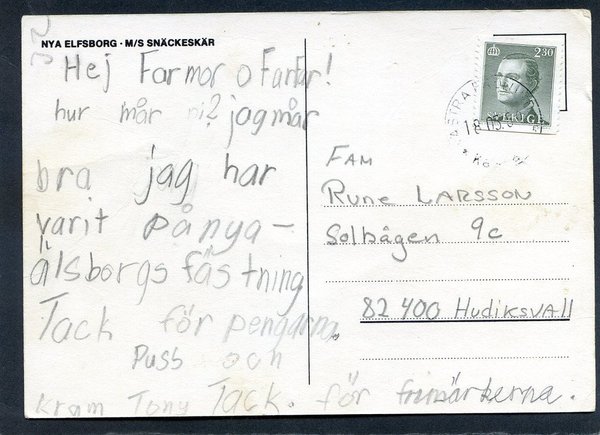 NYA ELFSBORG · M/S SNÄCKESKÄR
Hej Farmor o Farfar!
hur mår ni? jag mår
bra jag har
varit på nya-
älsborgs fästning
Tack för pengarna
Puss och
Kram Tony Tack. för frimärkerna.
2.80
SVERIGE
FAM
RUNE LARSSON
Solbågen 9c
82 400 HUDIKSVALL